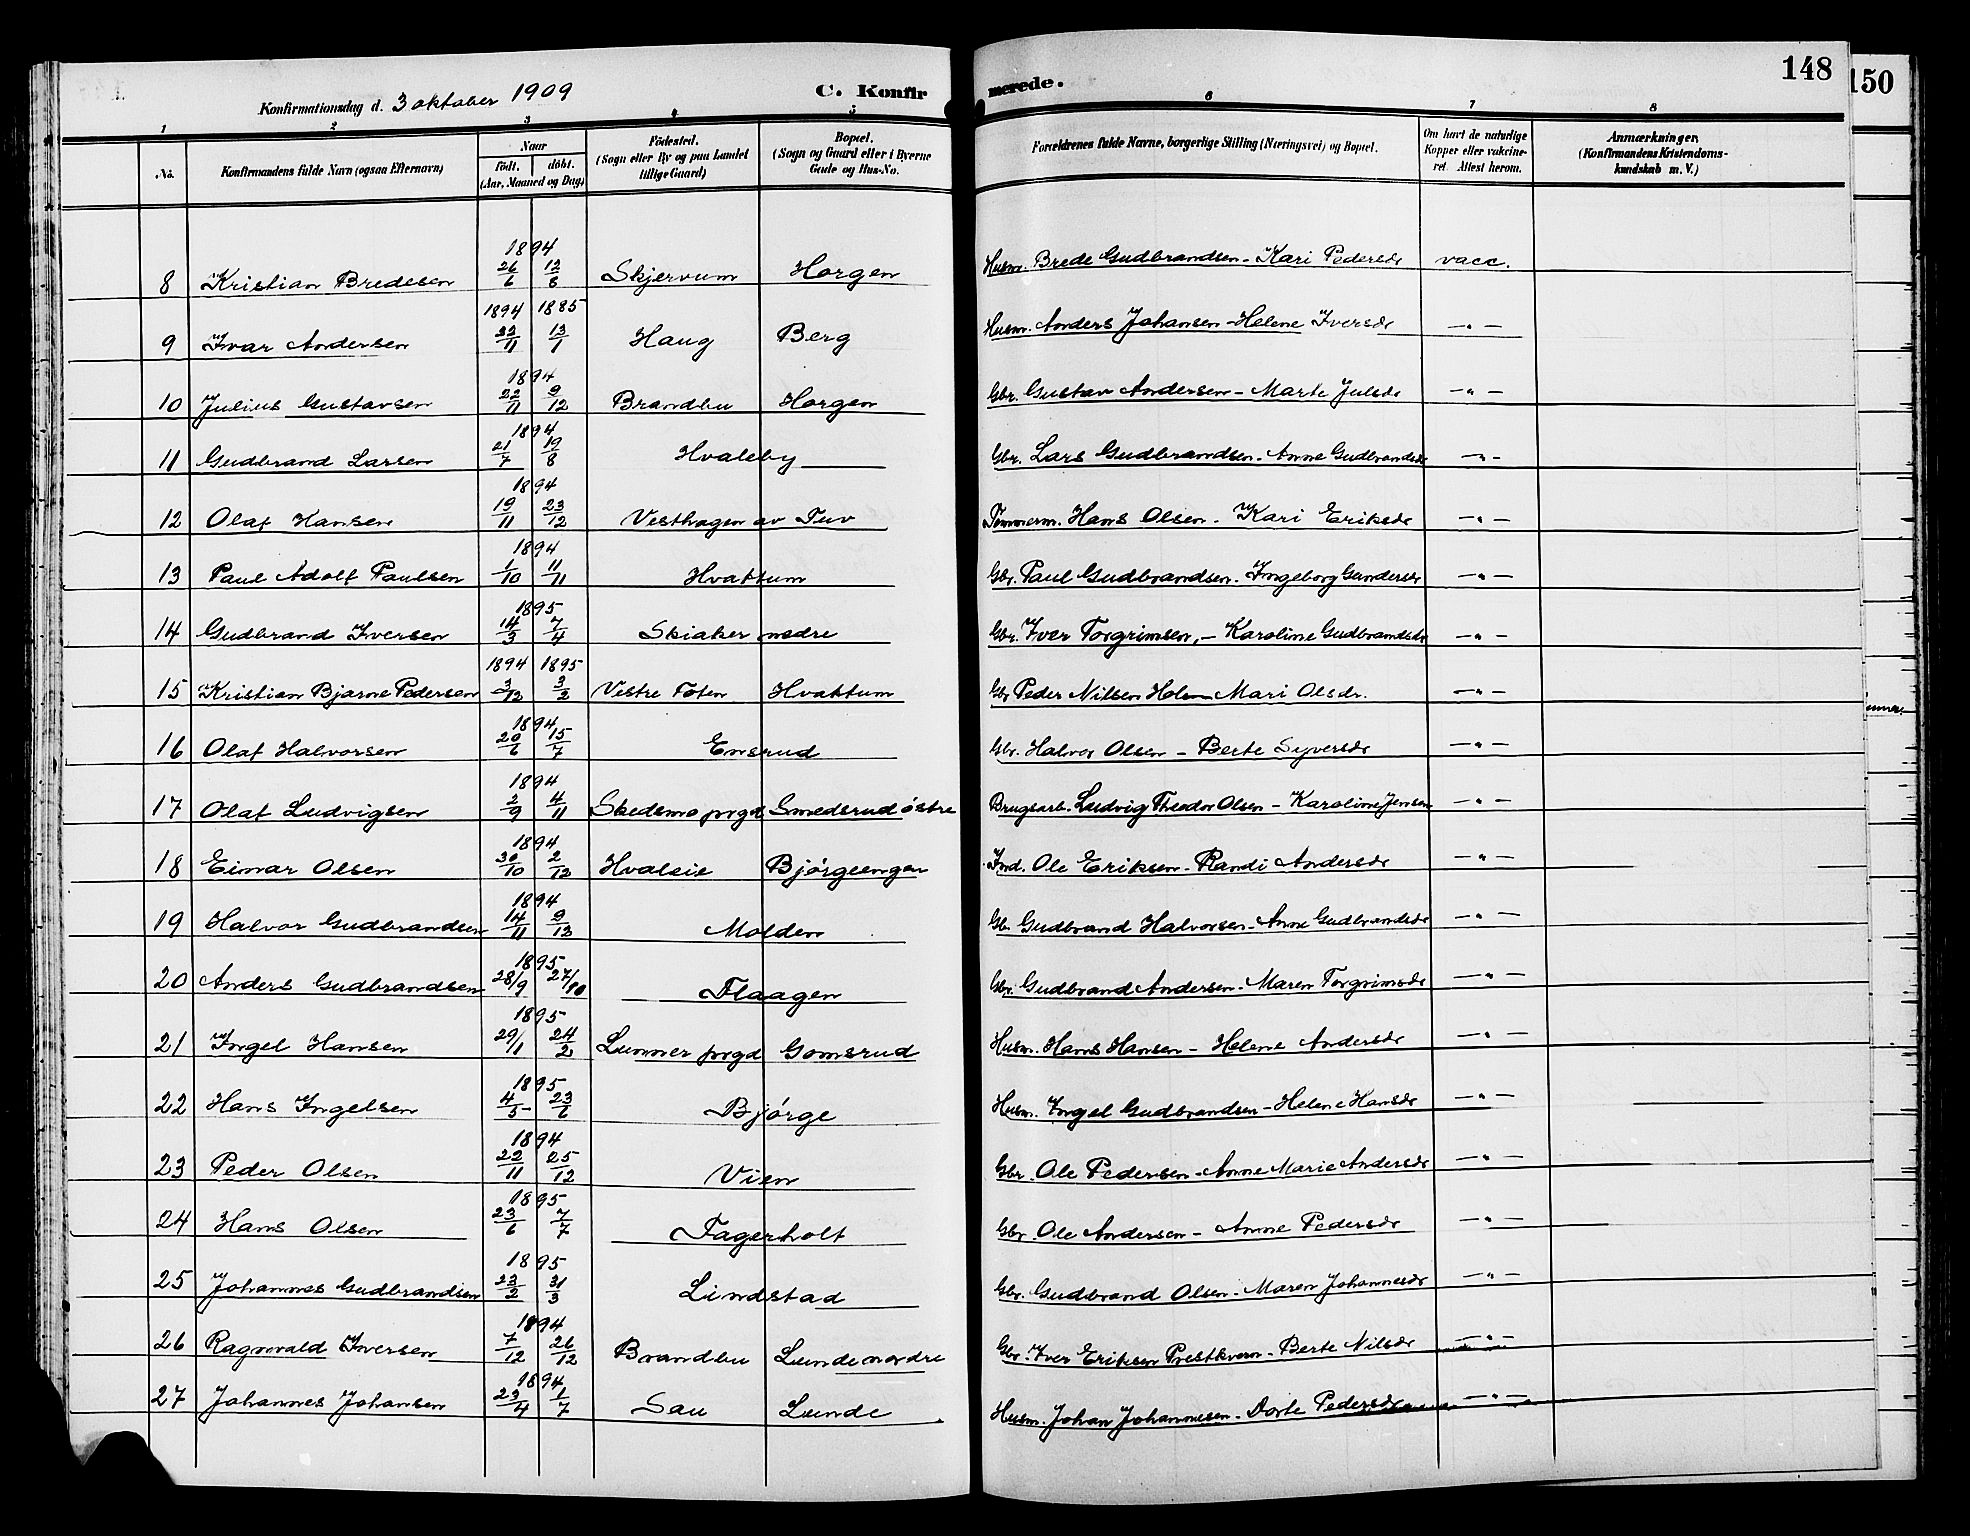 148
150
Konfirmationsdag d. 3 oktober 1909 C. Konfirmerede.
1 2 3 4 5 6 7 8
No. Konfirmandens fulde Navn (ogsaa Efternavn) Naar født. døbt. (Aar, Maaned og Dag) Fødested. (Sogn eller By og paa Landet tillige Gaard) Bopæl. (Sogn og Gaard eller i Byerne Gade og Hus-No. Forældrenes fulde Navne, borgerlige Stilling (Næringsvei) og Bopæl. Om havt de naturlige Kopper eller vaccineret. Attest herom. Anmærkninger. (Konfirmandens Kristendomskundskab m. V.)
8 Kristian Bredesen 1894 26/6 12/8 Skjervum Horgen Husm. Brede Gudbrandsen - Kari Pedersdr vacc.
9 Ivar Andersen 1894 22/11 1885 13/1 Haug Berg Husm. Anders Johansen - Helene Iversdr -"-
10 Julius Gustavsen 1894 22/11 9/12 Brandbu Horgen Gbr. Gustav Andersen - Marte Julsdr -"-
11 Gudbrand Larsen 1894 21/7 19/8 Hvaleby Gbr. Lars Gudbrandsen - Anne Gudbrandsdr -"-
12 Olaf Hansen 1894 19/11 23/12 Vesthagen av Tuv Tømmerm. Hans Olsen - Kari Eriksdr -"-
13 Paul Adolf Paulsen 1894 1/10 11/11 Hvattum Gbr. Paul Gudbrandsen - Ingeborg Gundersdr -"-
14 Gudbrand Iversen 1895 14/3 7/4 Skiaker nedre Gbr. Iver Torgrimsen, - Karoline Gudbrandsdr -"-
15 Kristian Bjarne Pedersen 1894 3/12 1895 3/2 Vestre Toten Hvattum Gbr Peder Nilsen Holm Mari Olsdr. -"-
16 Olaf Halvorsen 1894 20/6 15/7 Ensrud Gbr. Halvor Olsen - Berte Syversdr -"-
17 Olaf Ludvigsen 1894 2/9 4/11 Skedsmo prgd Smedsrud østre Brugsarb. Ludvig Theodor Olsen - Karoline Jensen -"-
18 Einar Olsen 1894 30/10 2/12 Hvaleie Bjørgeengen Ind. Ole Eriksen - Randi Andersdr -"-
19 Halvor Gudbrandsen 1894 14/11 9/12 Molden Gb. Gudbrand Halvorsen - Anne Gudbrandsdr -"-
20 Anders Gudbrandsen 1895 28/9 27/10 Flaagen Gbr. Gudbrand Andersen - Maren Torgrimsdr -"-
21 Ingel Hansen 1895 29/1 24/2 Lunner prgd Gomsrud Husm. Hans Hansen - Helene Andersdr -"-
22 Hans Ingelsen 1895 4/5 23/6 Bjørge Husm. Ingel Gudbrandsen - Helene Hansdr -"-
23 Peder Olsen 1894 22/11 25/12 Vien Gbr. Ole Pedersen - Anne Marie Andersdr -"-
24 Hans Olsen 1895 23/6 7/7 Fagerholt Gbr. Ole Andersen - Anne Pedersdr -"-
25 Johannes Gudbrandsen 1895 23/2 31/3 Lindstad Gbr. Gudbrand Olsen - Maren Johannesdr -"-
26 Ragnvald Iversen 1894 7/12 26/12 Brandbu Lunde nordre Gbr. Iver Eriksen Prestkvern - Berte Nilsdr -"-
27 Johannes Johansen 1894 23/4 1/7 Sau Lunde Husm. Johan Johannesen - Dorte Pedersdr -"-